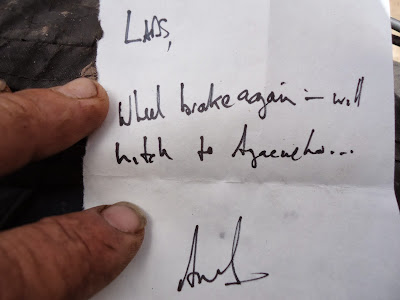 LADS,
Wheel brake again :- will
hitch to Ayacucho...